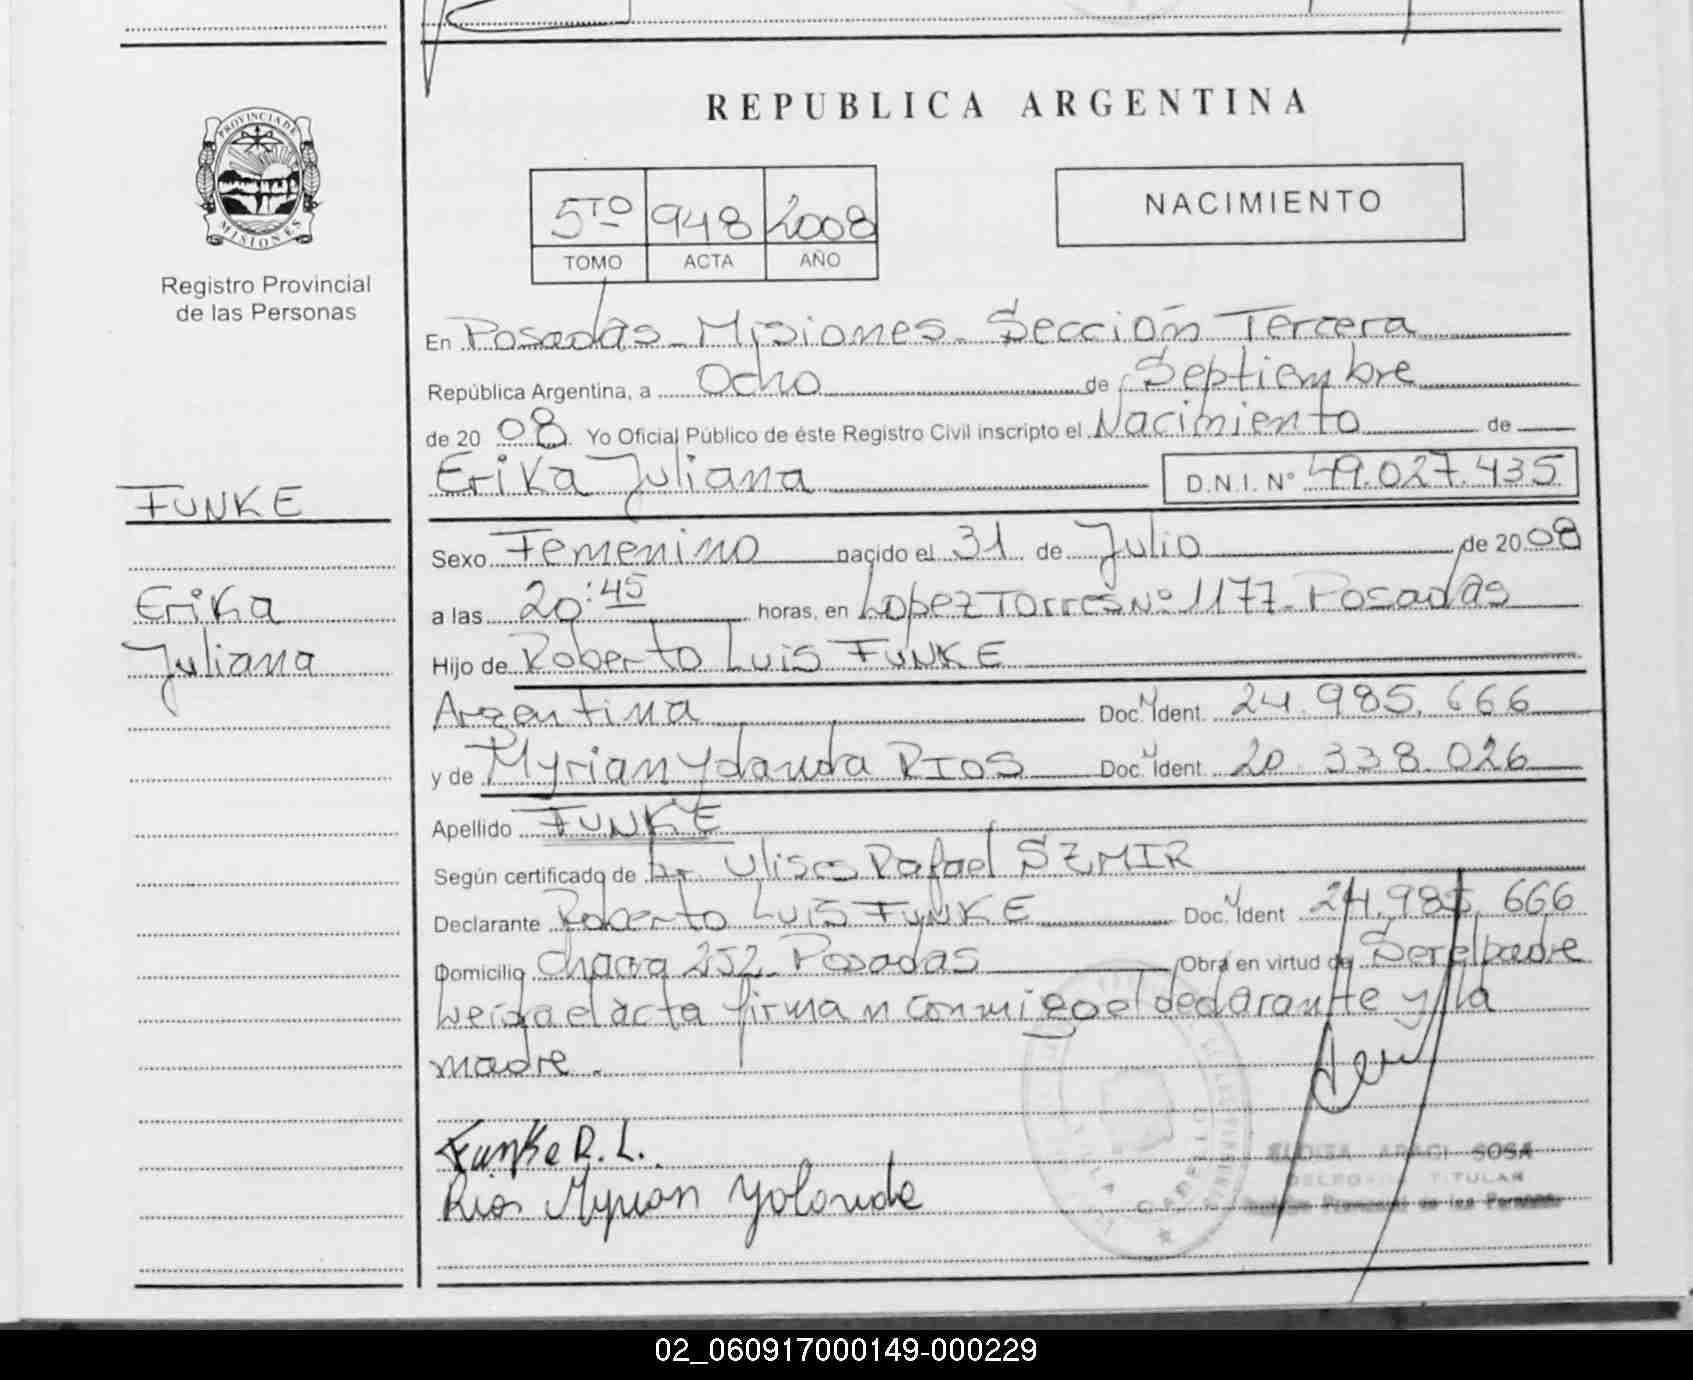 REPUBLICA ARGENTINA
PROVINCIA DE MISIONES
Registro Provincial
de las Personas
5TO 948 2008
TOMO ACTA AÑO
NACIMIENTO
En Posadas - Misiones - Sección Tercera
República Argentina, a Ocho de Septiembre
de 20 08 Yo Oficial Público de éste Registro Civil inscripto el Nacimiento de
Erika Juliana D.N.I. Nº 49.027.435
FUNKE
Erika
Juliana
Sexo Femenino nacido el 31 de Julio de 20 08
a las 20:45 horas, en Lopez Torres Nº 1177 - Posadas
Hijo de Roberto Luis FUNKE
Argentina Doc. Ident. 24.985.666
y de Myrian Yolanda RIOS Doc. Ident. 20.338.026
Apellido FUNKE
Según certificado de Dr. Ulises Rafael SZMIR
Declarante Roberto Luis FUNKE Doc. Ident 24.985.666
Domicilio Chacra 252 - Posadas Obra en virtud de Ser el padre
Leída el acta firman conmigo el declarante y la
madre.
Funke R. L.
Rios Myrian Yolanda
SOSA
TITULAR
Provincial de las Personas
02_060917000149-000229